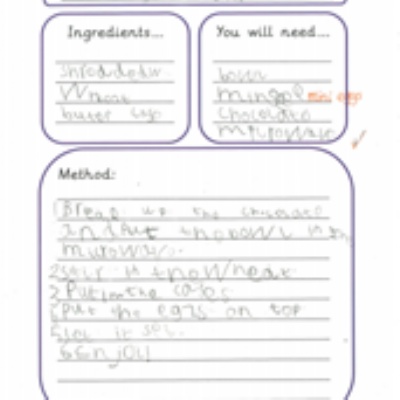 Ingredients...
shredded w
Wheat
buter
You will need...
bowl
mini eggs
chocolate
microwave
Method:
1 Break up the chocolate
and Put the bowl in the
microwave.
2 Stir in the Wheat
3 Put in the
4 Put the eggs on top
5 let it set.
6 Enjoy